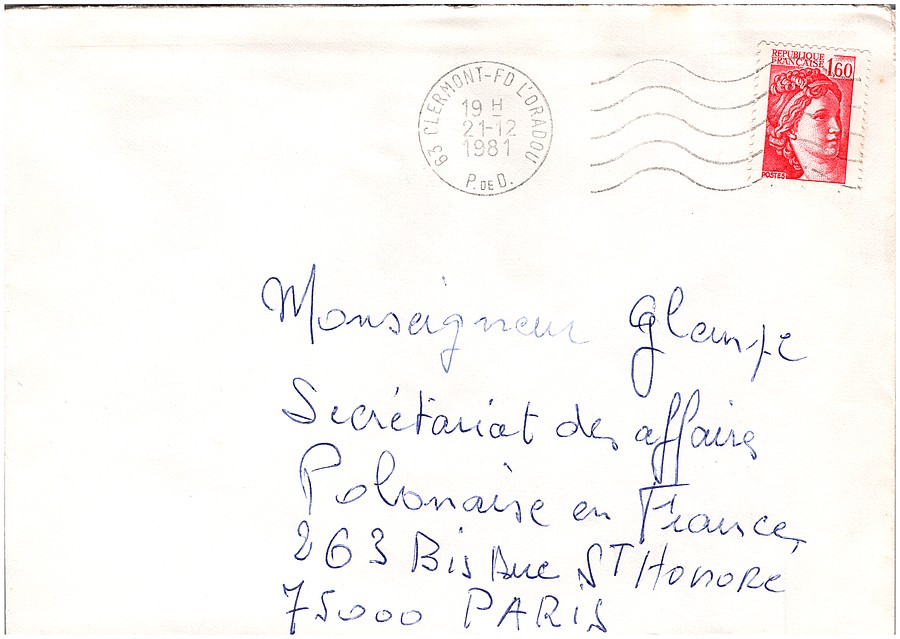 REPUBLIQUE
FRANÇAISE 1,60
POSTES
63 CLERMONT-FD L'ORADOU
19 H
21-12
1981
P. DE D.
Monseigneur
Secrétariat des affaires
Polonaise en France,
263 Bis Rue ST HONORE
75000 PARIS